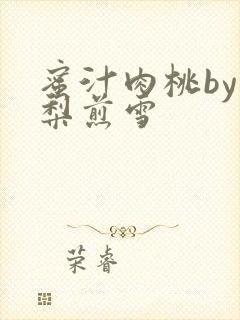 蜜汁肉桃by
梨煎雪
荣睿